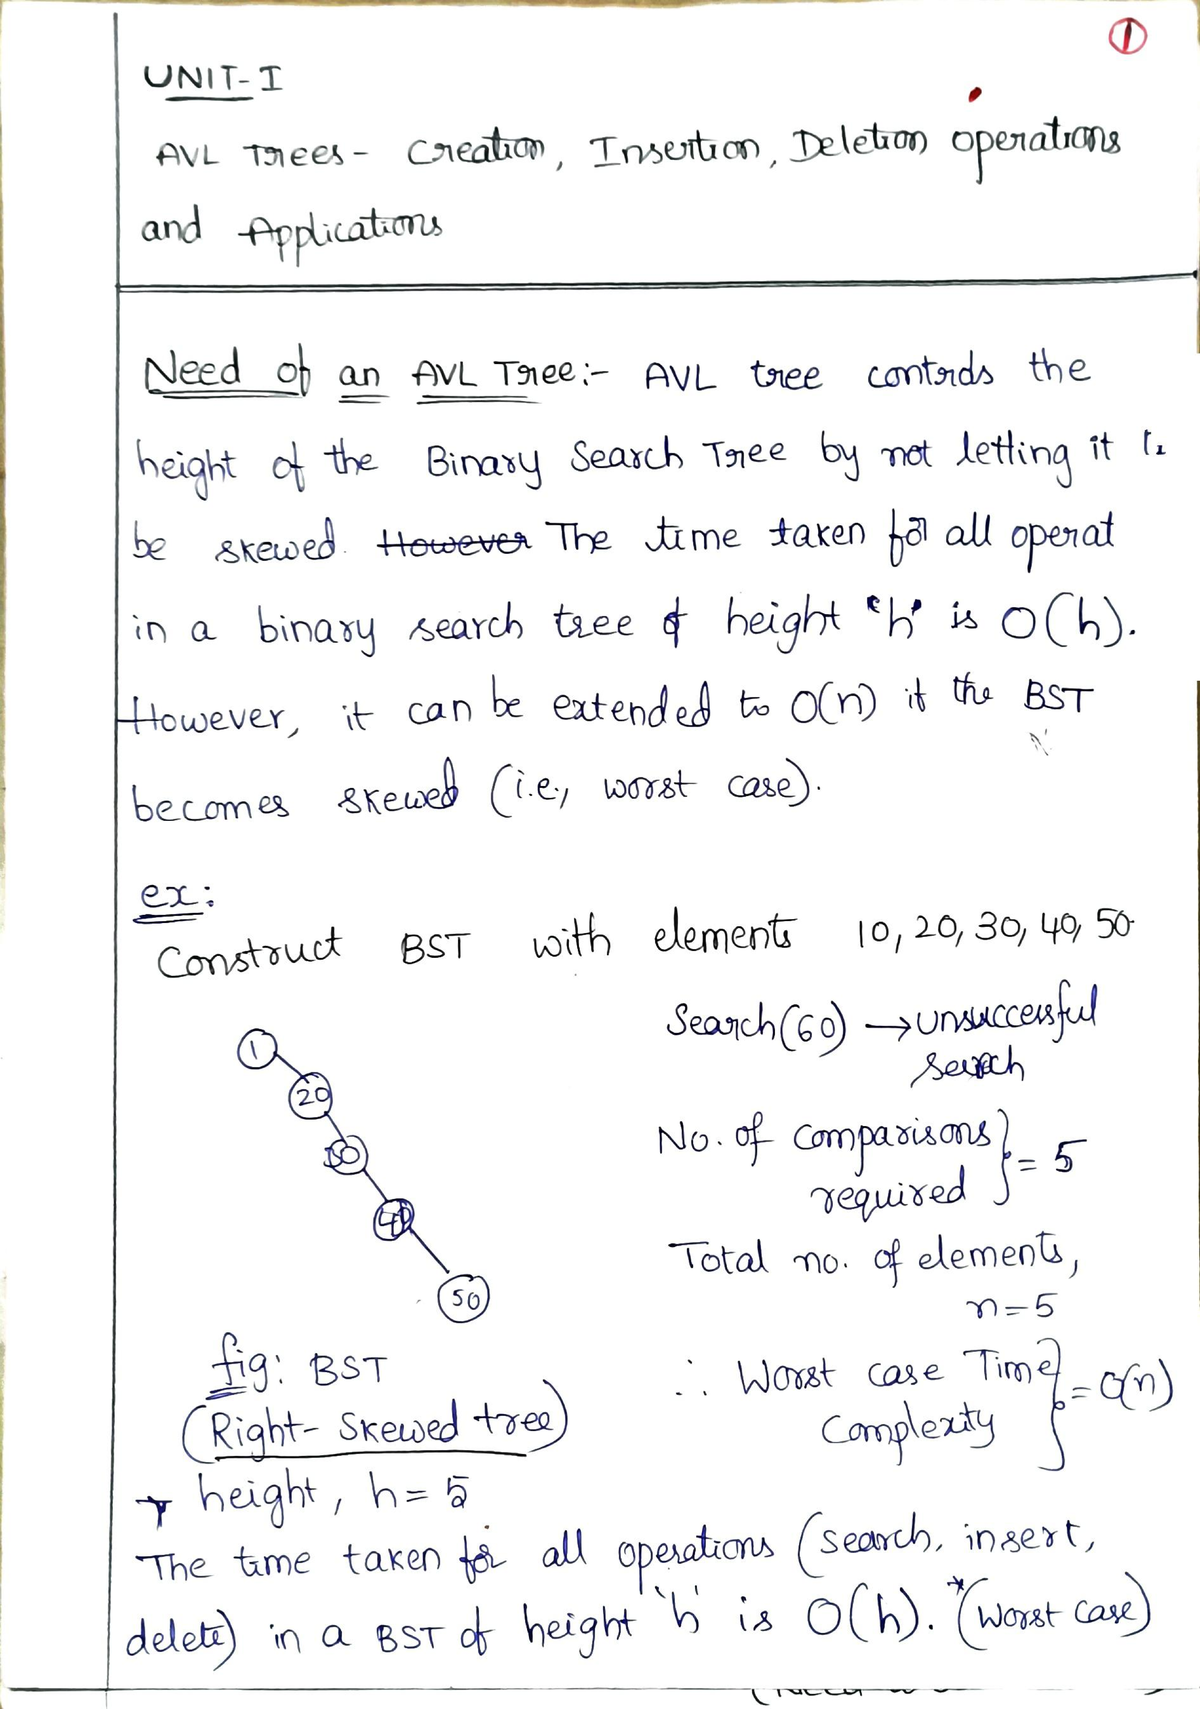 1
UNIT-I
AVL Trees - Creation, Insertion, Deletion operations
and Applications
Need of an AVL Tree:- AVL tree controls the
height of the Binary Search Tree by not letting it
be skewed. However The time taken for all operat
in a binary search tree of height 'h' is O(h).
However, it can be extended to O(n) if the BST
becomes skewed (i.e., worst case).
ex:
Construct BST with elements 10, 20, 30, 40, 50
Search(60) → unsuccessful
search
1
20
30
40
50
No. of comparisons
required } = 5
Total no. of elements,
n=5
fig: BST
(Right-Skewed tree)
∴ Worst case Time
Complexity } = O(n)
height, h = 5
The time taken for all operations (search, insert,
delete) in a BST of height 'h' is O(h). *(Worst Case)